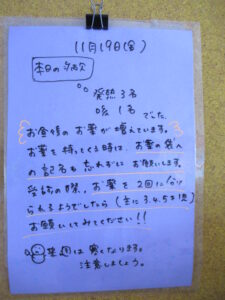 11月19日(金)
本日の病欠
発熱 3名
咳 1名 でした。
お食後のお薬が増えています。
お薬を持ってくる時は、お薬の袋へ
の記名も忘れずにお願いします。
受診の際、お薬を2回に分け
られるようでしたら(主に3.4.5才児)
お願いしてみてください!!
は寒くなります。
注意しましょう。